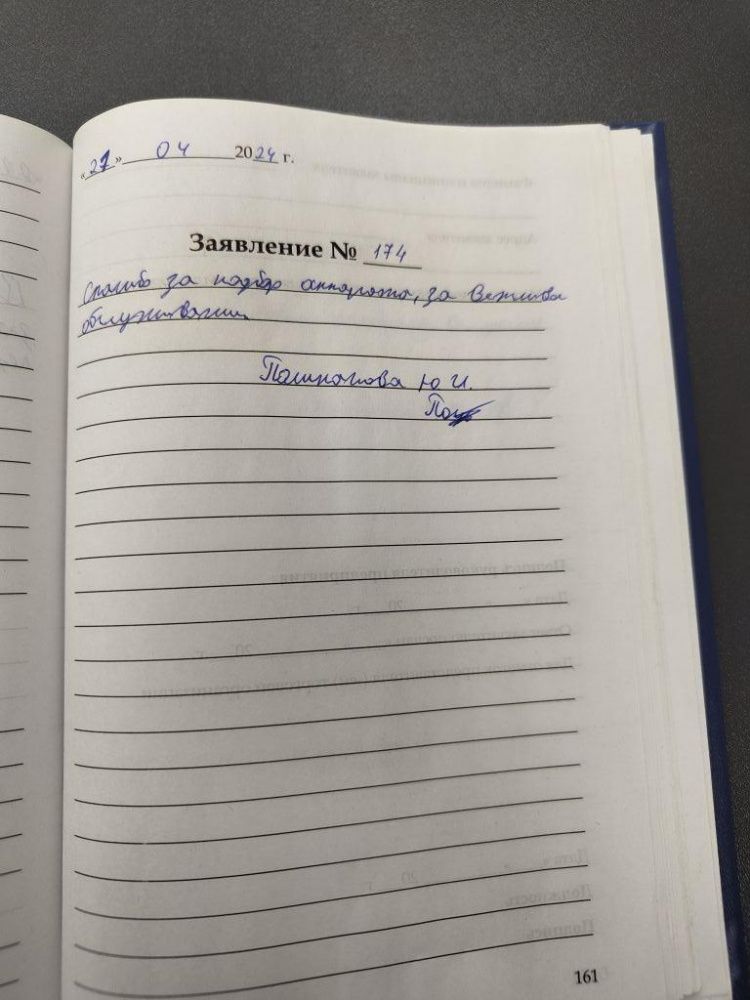 «27» 04 2024 г.
Заявление № 174
Спасибо за подбор аппарата, за вежливое
обслуживание
Ю И.
161